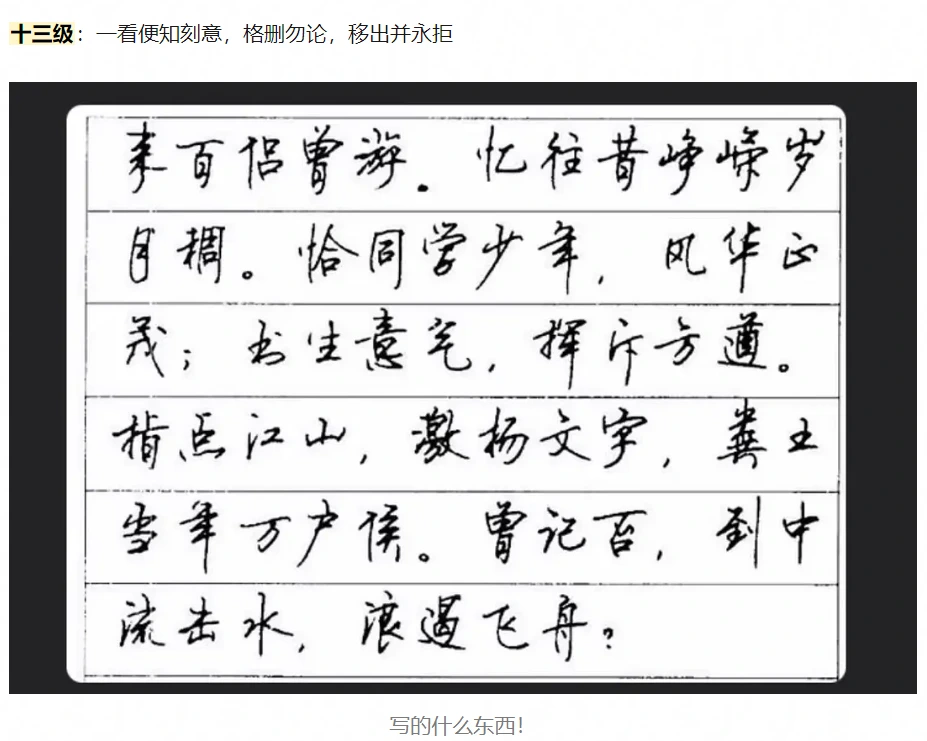 十三级：一看便知刻意，格删勿论，移出并永拒
来百侣曾游．忆往昔峥嵘岁
月稠。恰同学少年，风华正
茂；书生意气，挥斥方遒。
指点江山，激扬文字，粪土
当年万户侯。曾记否，到中
流击水，浪遏飞舟？
写的什么东西！